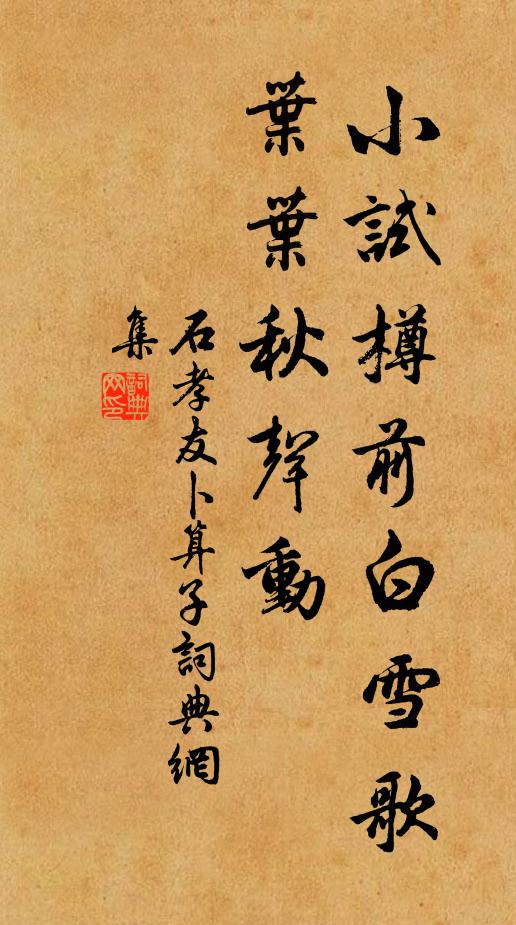 小試樽前白雪歌
葉葉秋聲動
石孝友卜算子詞典網
集
詞典網印